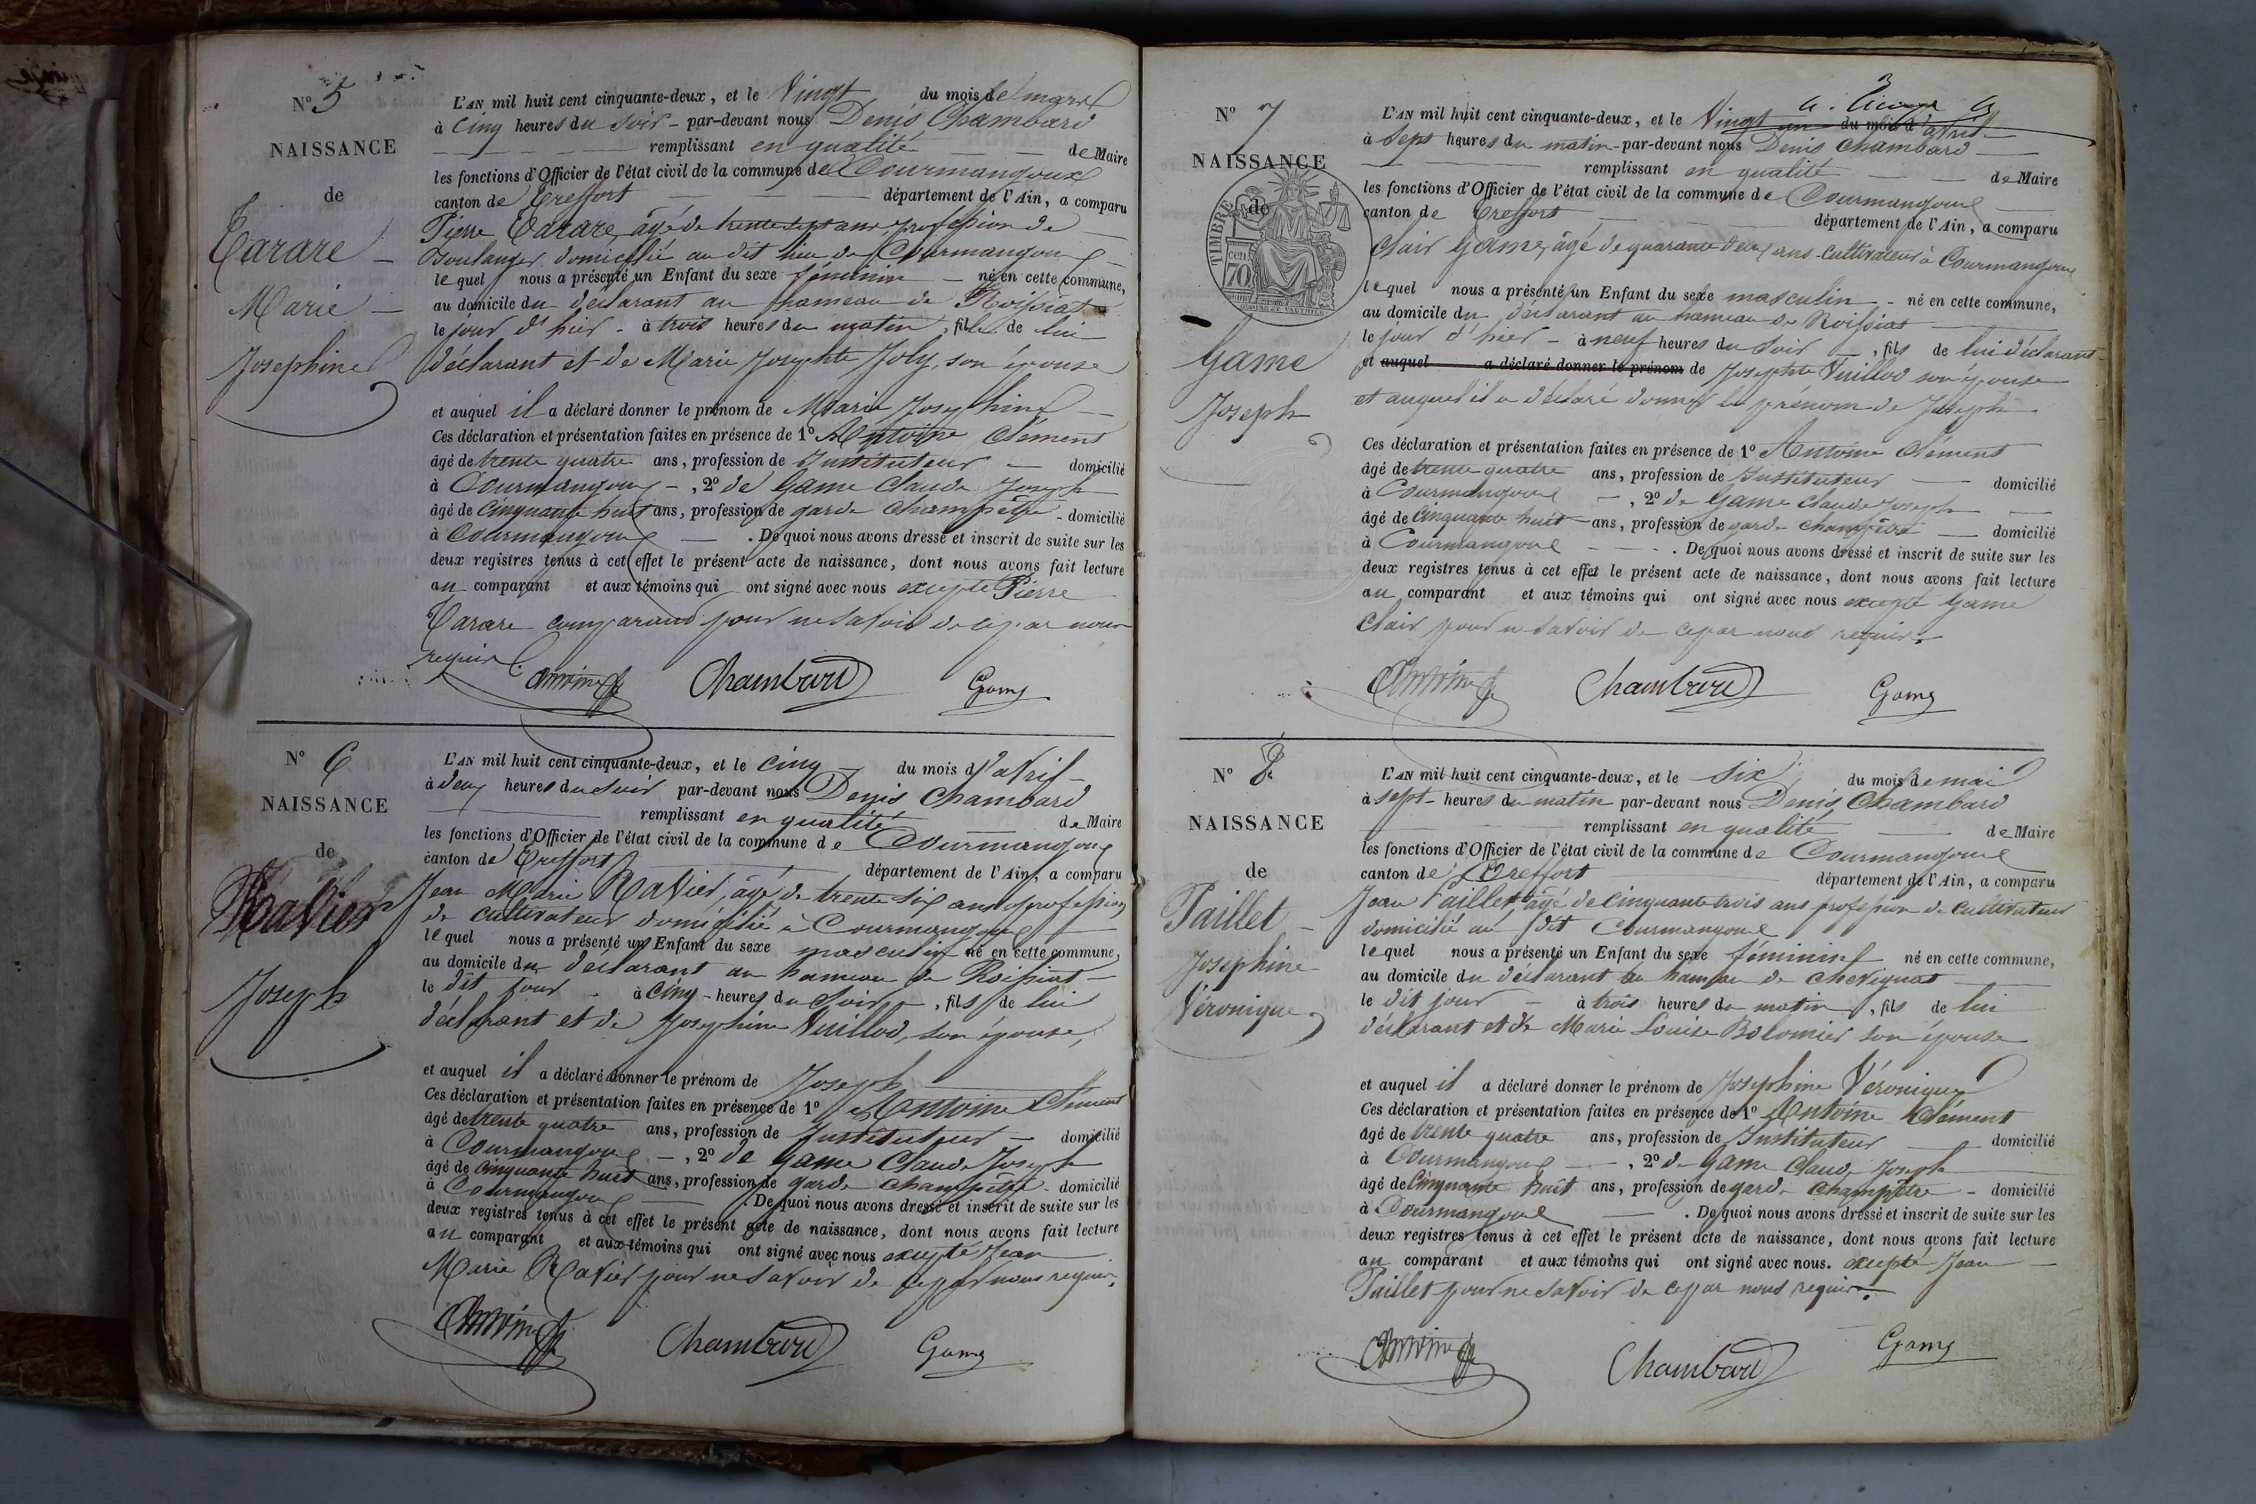 N° 5
NAISSANCE
de
Tarare
Marie
Josephine
L'AN mil huit cent cinquante-deux, et le Vingt du mois de mars
à cinq heures du soir - par-devant nous Denis Chambard
remplissant en qualité de Maire
les fonctions d'Officier de l'état civil de la commune de Courmangoux
canton de Treffort département de l'Ain, a comparu
Pierre Tarare, âgé de trente sept ans, profession de
Boulanger, domicilié au dit lieu de Courmangoux
lequel nous a présenté un Enfant du sexe féminin - né en cette commune,
au domicile du déclarant au hameau de Roissiat
le jour d'hier - à trois heures du matin, fille de lui
déclarant et de Marie Josephte Joly, son épouse
et auquel il a déclaré donner le prénom de Marie Josephine
Ces déclaration et présentation faites en présence de 1° Antoine Clément
âgé de trente quatre ans, profession de Instituteur - domicilié
à Courmangoux -, 2° de Game Claude Joseph
âgé de cinquante huit ans, profession de garde champêtre - domicilié
à Courmangoux - . De quoi nous avons dressé et inscrit de suite sur les
deux registres tenus à cet effet le présent acte de naissance, dont nous avons fait lecture
au comparant et aux témoins qui ont signé avec nous excepté Pierre
Tarare comparant pour ne savoir de ce par nous
requis.
Antoine Chambard Game
N° 6
NAISSANCE
de
Ravier
Joseph
L'AN mil huit cent cinquante-deux, et le cinq du mois d'avril
à deux heures du soir par-devant nous Denis Chambard
remplissant en qualité de Maire
les fonctions d'Officier de l'état civil de la commune de Courmangoux
canton de Treffort département de l'Ain, a comparu
Jean Marie Ravier, âgé de trente six ans, profession
de cultivateur domicilié à Courmangoux
lequel nous a présenté un Enfant du sexe masculin né en cette commune,
au domicile du déclarant au hameau de Roissiat
le dit jour - à cinq - heures du soir, fils de lui
déclarant et de Josephine Vuillod, son épouse,
et auquel il a déclaré donner le prénom de Joseph
Ces déclaration et présentation faites en présence de 1° Antoine Clément
âgé de trente quatre ans, profession de Instituteur - domicilié
à Courmangoux -, 2° de Game Claude Joseph
âgé de cinquante huit ans, profession de garde champêtre - domicilié
à Courmangoux . De quoi nous avons dressé et inscrit de suite sur les
deux registres tenus à cet effet le présent acte de naissance, dont nous avons fait lecture
au comparant et aux témoins qui ont signé avec nous excepté Jean
Marie Ravier pour ne savoir de ce par nous requis.
Antoine Chambard Game
N° 7
NAISSANCE
de
TIMBRE
70
Game
Joseph
L'AN mil huit cent cinquante-deux, et le Vingt un du mois d'avril
à sept heures du matin - par-devant nous Denis Chambard
remplissant en qualité de Maire
les fonctions d'Officier de l'état civil de la commune de Courmangoux
canton de Treffort département de l'Ain, a comparu
Clair Game, âgé de quarante deux ans - Cultivateur à Courmangoux
lequel nous a présenté un Enfant du sexe masculin - né en cette commune,
au domicile du déclarant au hameau de Roissiat
le jour d'hier - à neuf heures du soir, fils de lui déclarant
et auquel a déclaré donner le prénom de Josephte Vuillod son épouse
et auquel il a déclaré donner le prénom de Joseph.
Ces déclaration et présentation faites en présence de 1° Antoine Clément
âgé de trente quatre ans, profession de Instituteur domicilié
à Courmangoux -, 2° de Game Claude Joseph
âgé de cinquante huit - ans, profession de garde champêtre domicilié
à Courmangoux . De quoi nous avons dressé et inscrit de suite sur les
deux registres tenus à cet effet le présent acte de naissance, dont nous avons fait lecture
au comparant et aux témoins qui ont signé avec nous excepté Game
Clair pour ne savoir de ce par nous requis.
Antoine Chambard Game
N° 8
NAISSANCE
de
Paillet
Josephine
Véronique
L'AN mil huit cent cinquante-deux, et le six du mois de mai
à sept - heures du matin par-devant nous Denis Chambard
remplissant en qualité de Maire
les fonctions d'Officier de l'état civil de la commune de Courmangoux
canton de Treffort département de l'Ain, a comparu
Jean Paillet âgé de cinquante trois ans profession de cultivateur
domicilié au dit Courmangoux
lequel nous a présenté un Enfant du sexe féminin né en cette commune,
au domicile du déclarant au hameau de Chevignat
le dit jour - à trois heures du matin, fils de lui
déclarant et de Marie Louise Bolomier son épouse
et auquel il a déclaré donner le prénom de Josephine Véronique
Ces déclaration et présentation faites en présence de 1° Antoine Clément
âgé de trente quatre ans, profession de Instituteur domicilié
à Courmangoux -, 2° de Game Claude Joseph
âgé de Cinquante huit ans, profession de garde champêtre - domicilié
à Courmangoux . De quoi nous avons dressé et inscrit de suite sur les
deux registres tenus à cet effet le présent acte de naissance, dont nous avons fait lecture
au comparant et aux témoins qui ont signé avec nous. excepté Jean
Paillet pour ne savoir de ce par nous requis.
Antoine Chambard Game